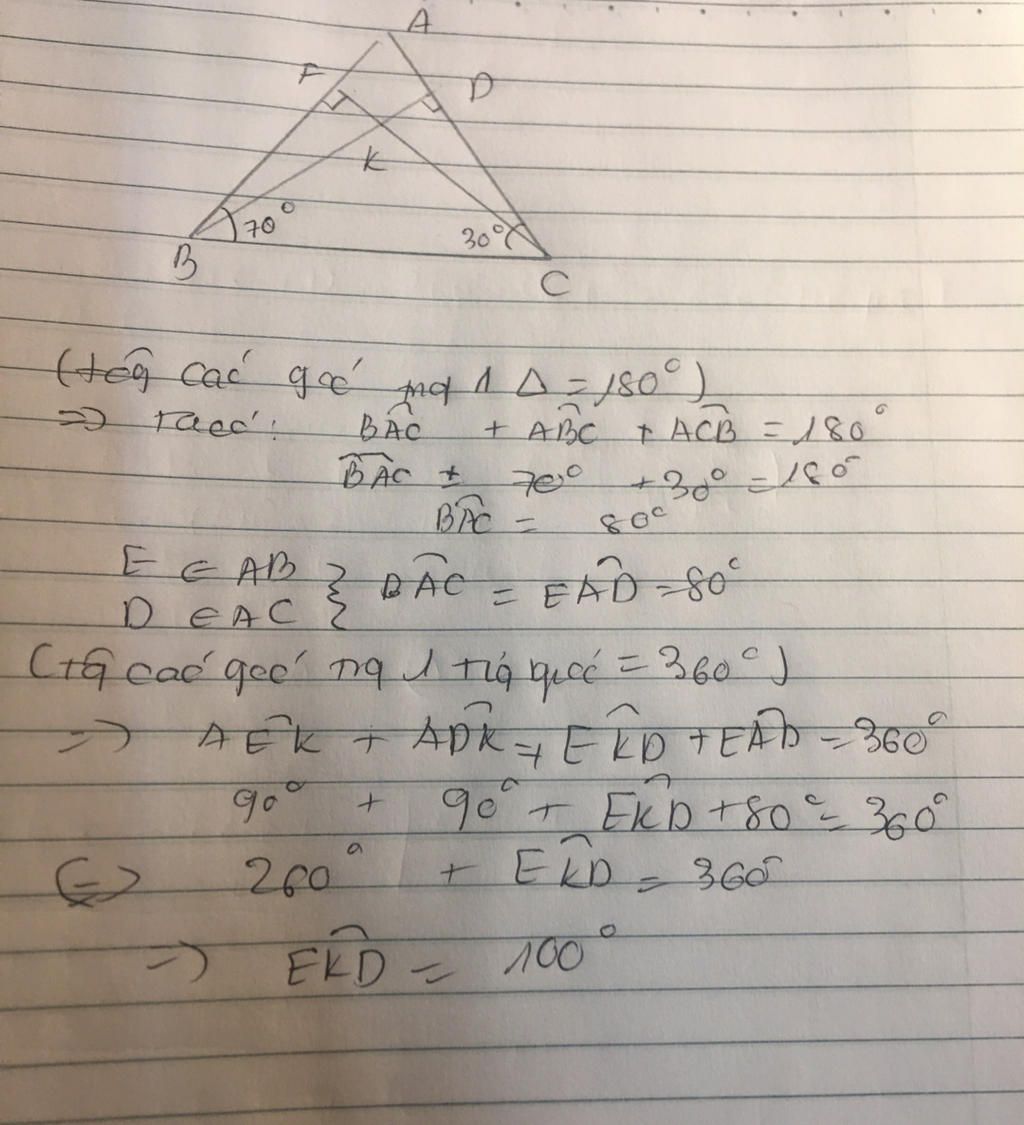 A
F D
K
70° 30°
B
C
(tổg các góc trg 1 Δ = 180°)
=> Ta có: BAC + ABC + ACB = 180°
BAC + 70° + 30° = 180°
BAC = 80°
E ∈ AB } BAC = EAD = 80°
D ∈ AC
(tg các góc trg 1 tứ giác = 360°)
=> AEK + ADK + EKD + EAD = 360°
90° + 90° + EKD + 80° = 360°
<=> 260° + EKD = 360°
=> EKD = 100°